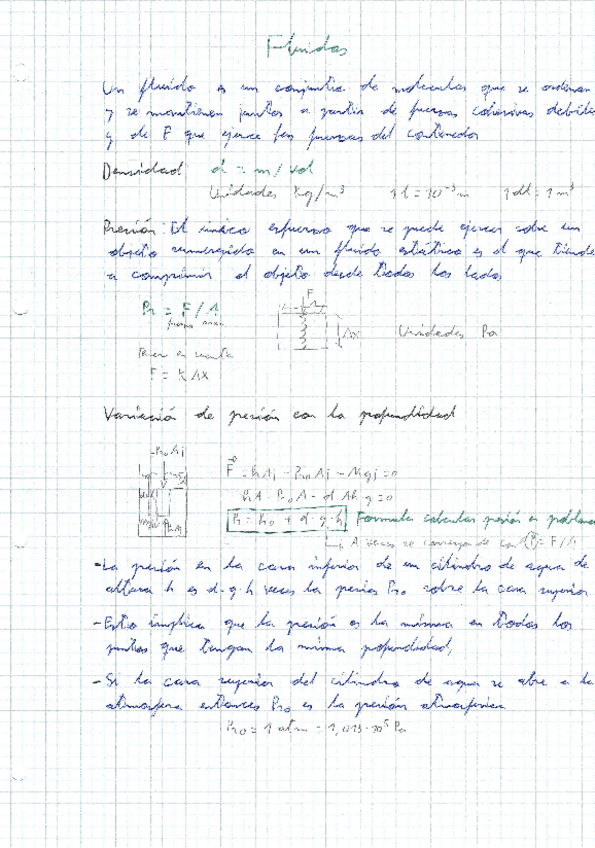 Fluidos
Un fluido es un conjunto de moleculas que se ordenan
y se mantienen juntos a partir de fuerzas cohesivas debiles
y de F que ejerce las fuerzas del contenedor
Densidad d = m/vol
Unidades Kg/m³ 1l = 10⁻³ m 1 = 1 m³
Presión: El único esfuerzo que se puede ejercer sobre un
objeto sumergido en un fluido estático es el que tiende
a comprimir el objeto desde todos los lados
Pr = F/A
F
Δx
Unidades Pa
Tener en cuenta
F = k Δx
Variación de presión con la profundidad
F = PrAj - Pr₀Aj - Mgj = 0
PrA - Pr₀A - dAhg = 0
Pr = Pr₀ + d · g · h Formula calcular presión en problemas
A veces se con P = F/A
- La presión en la cara inferior de un cilindro de agua de
altura h es d · g · h veces la presión Pr₀ sobre la cara superior
- Esto implica que la presión es la misma en todos los
puntos que tengan la misma profundidad,
- Si la cara superior del cilindro de agua se abre a la
atmosfera entonces Pr₀ es la presión atmosferica
Pr₀ = 1 atm = 1,013 · 10⁵ Pa